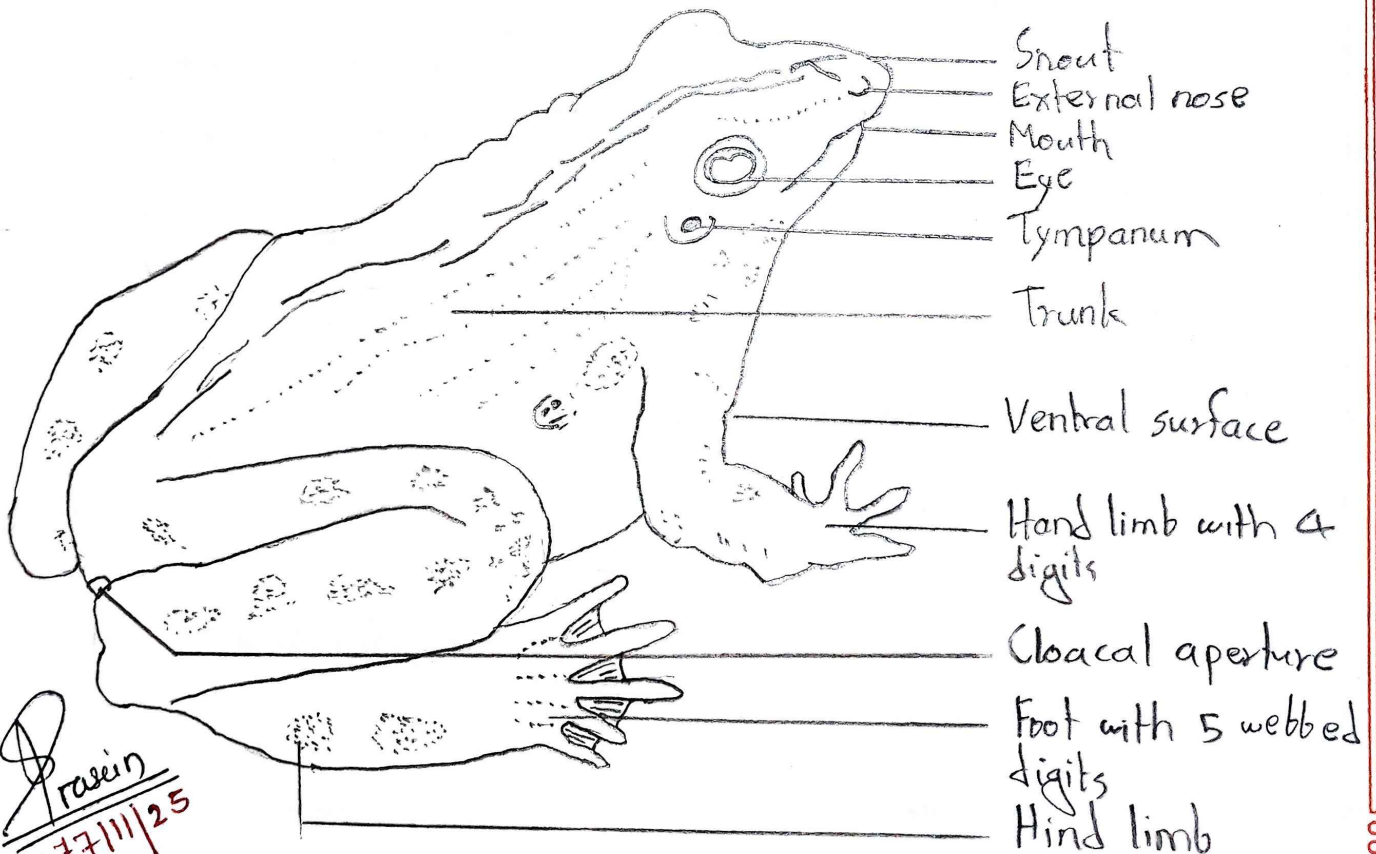 Snout
External nose
Mouth
Eye
Tympanum
Trunk
Ventral surface
Hand limb with 4
digits
Cloacal aperture
Foot with 5 webbed
digits
Hind limb
17/11/25